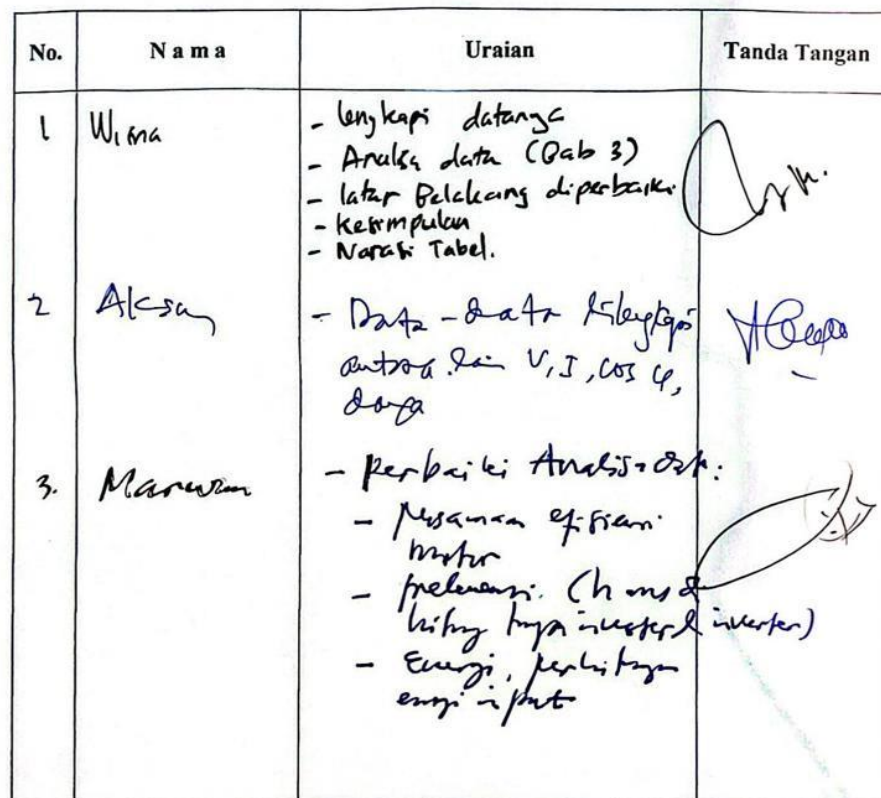 No. Nama Uraian Tanda Tangan
1 Wisna - lengkapi datanya
- Analisa data (Bab 3)
- latar Belakang diperbaiki
- Kesimpulan
- Narasi Tabel.
2 Aksan - Data-data dilengkapi
antara lain V, I, cos φ,
daya
3. Marwan - Perbaiki Analisa data:
- efisiensi
motor
- frekuensi.
hitung tanpa inverter & inverter)
- Energi, perhitungan
energi input